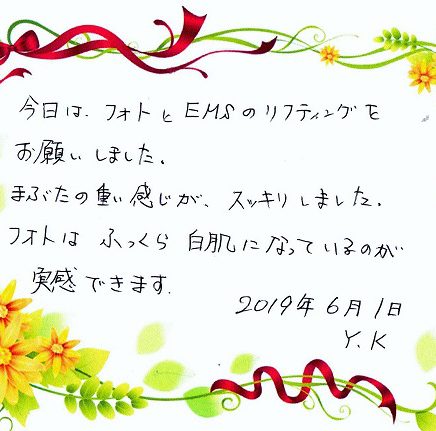 今日は、フォトとEMSのリフティングを
お願いしました。
まぶたの重い感じが、スッキリしました。
フォトは ふっくら 白肌になっているのが
実感できます。
2019年6月1日
Y.K